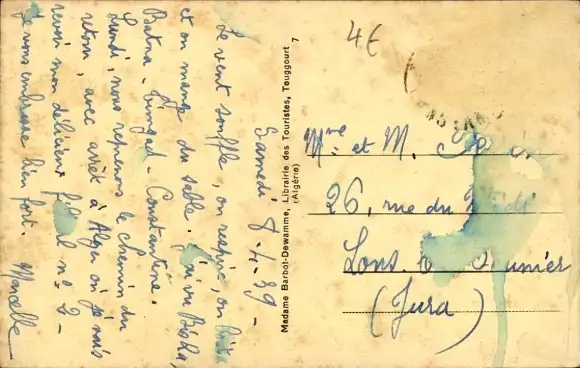 Samedi 8-4-39-
Le vent souffle, on respire, on
et on mange du sable. J'ai vu Biskra,
Batna - Timgad - Constantine.
Lundi, nous reprenons le chemin du
retour, avec arrêt à Alger où je vais
revoir mon délicieux n° 2-
Je vous embrasse bien fort. Marcelle
Madame Barbot-Dewamme, Librairie des Touristes, Touggourt
(Algérie)
7
4€
Mme et M.
26, rue du
Lons Saunier
(Jura)